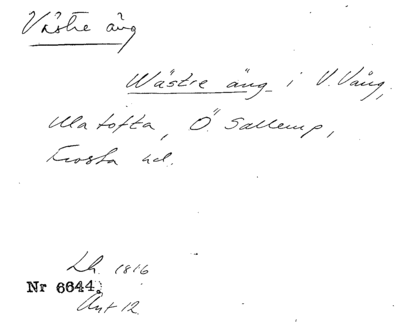 Västre äng
Wästre äng i V. Vång,
Ulatofta, Ö. Sallerup,
Frosta hd.
Lh. 1816
Nr 6644.
Akt 12